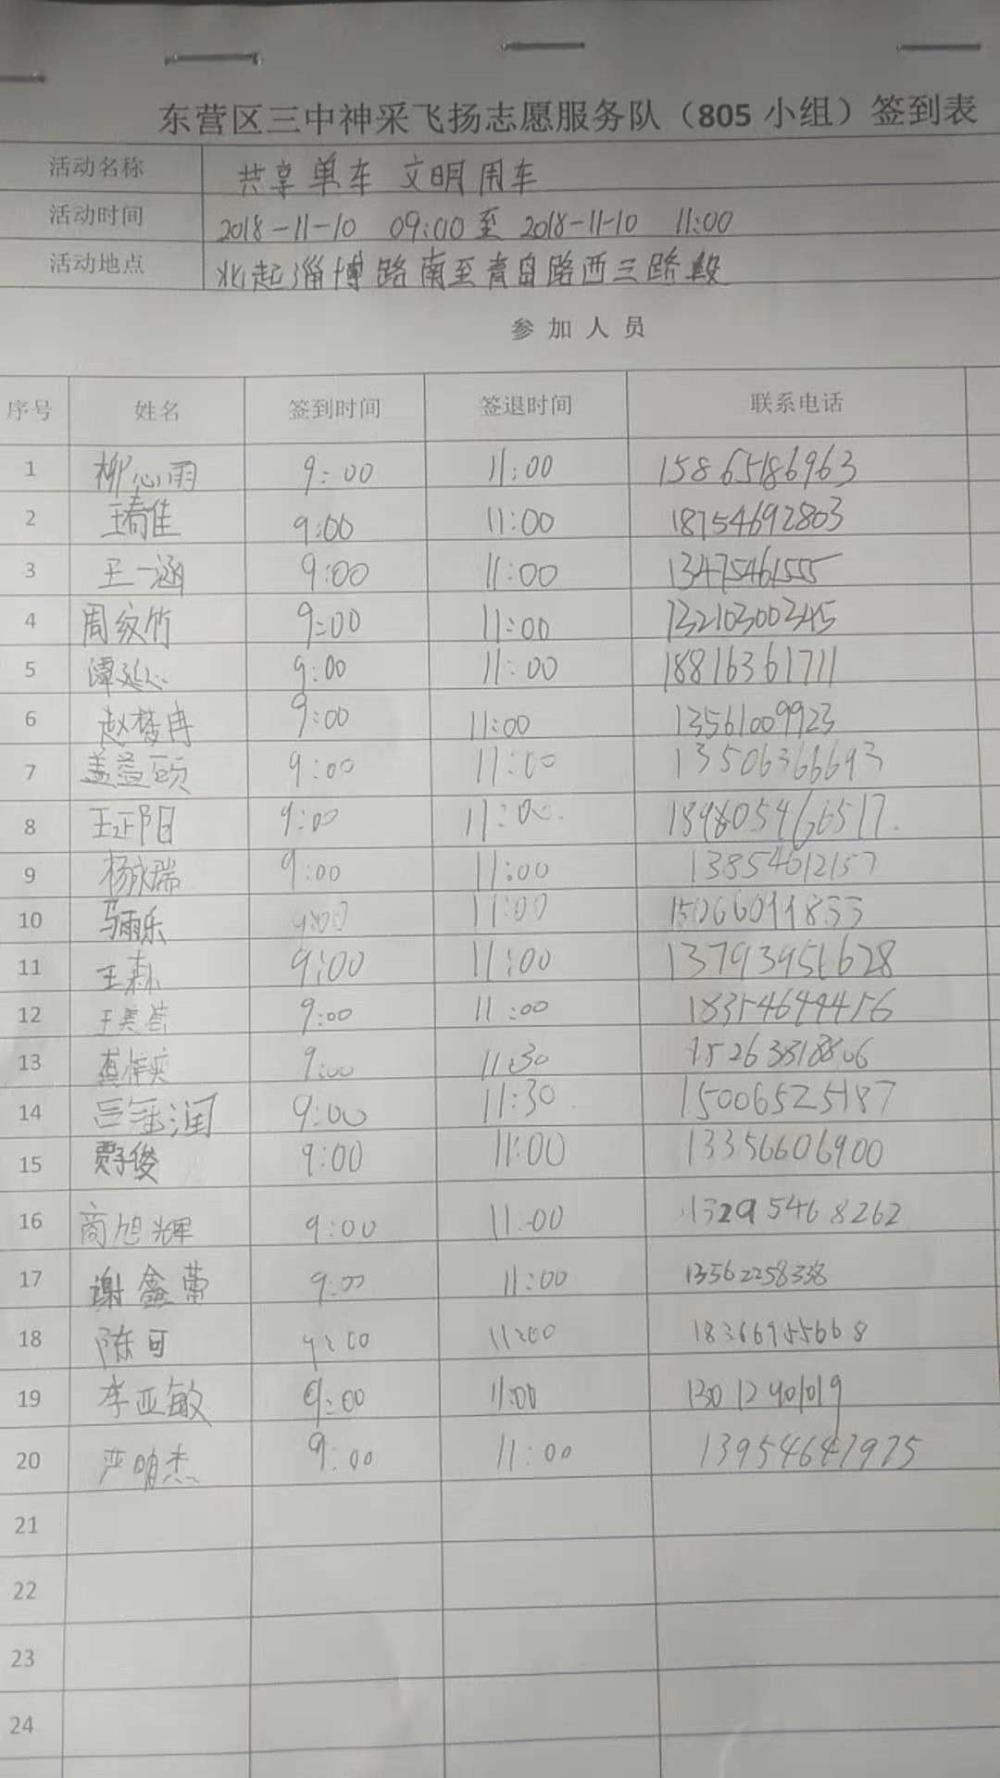 东营区三中神采飞扬志愿服务队（805 小组）签到表
活动名称 共享单车 文明用车
活动时间 2018-11-10 09:00至 2018-11-10 11:00
活动地点 北起淄博路南至青岛路西三路段
参加人员
序号 姓名 签到时间 签退时间 联系电话
1 柳心雨 9:00 11:00 15865186963
2 9:00 11:00 18754692803
3 王一涵 9:00 11:00 13475461555
4 周纹竹 9:00 11:00 13210300345
5 9:00 11:00 18816361711
6 赵梦冉 9:00 11:00 13561009923
7 盖益硕 9:00 11:00
8 王正阳 9:00 11:00
9 杨永瑞 9:00 11:00 13854612157
10 马雨乐 9:00 11:00
11 9:00 11:00
12 9:00 11:00
13 9:00 11:30
14 9:00 11:30 15006525187
15 贾子俊 9:00 11:00 13356606900
16 商旭辉 9:00 11:00 13295468262
17 谢鑫蕾 9:00 11:00 13562258338
18 陈可 9:00 11:00
19 李亚敏 9:00 11:00
20 严明杰 9:00 11:00
21
22
23
24